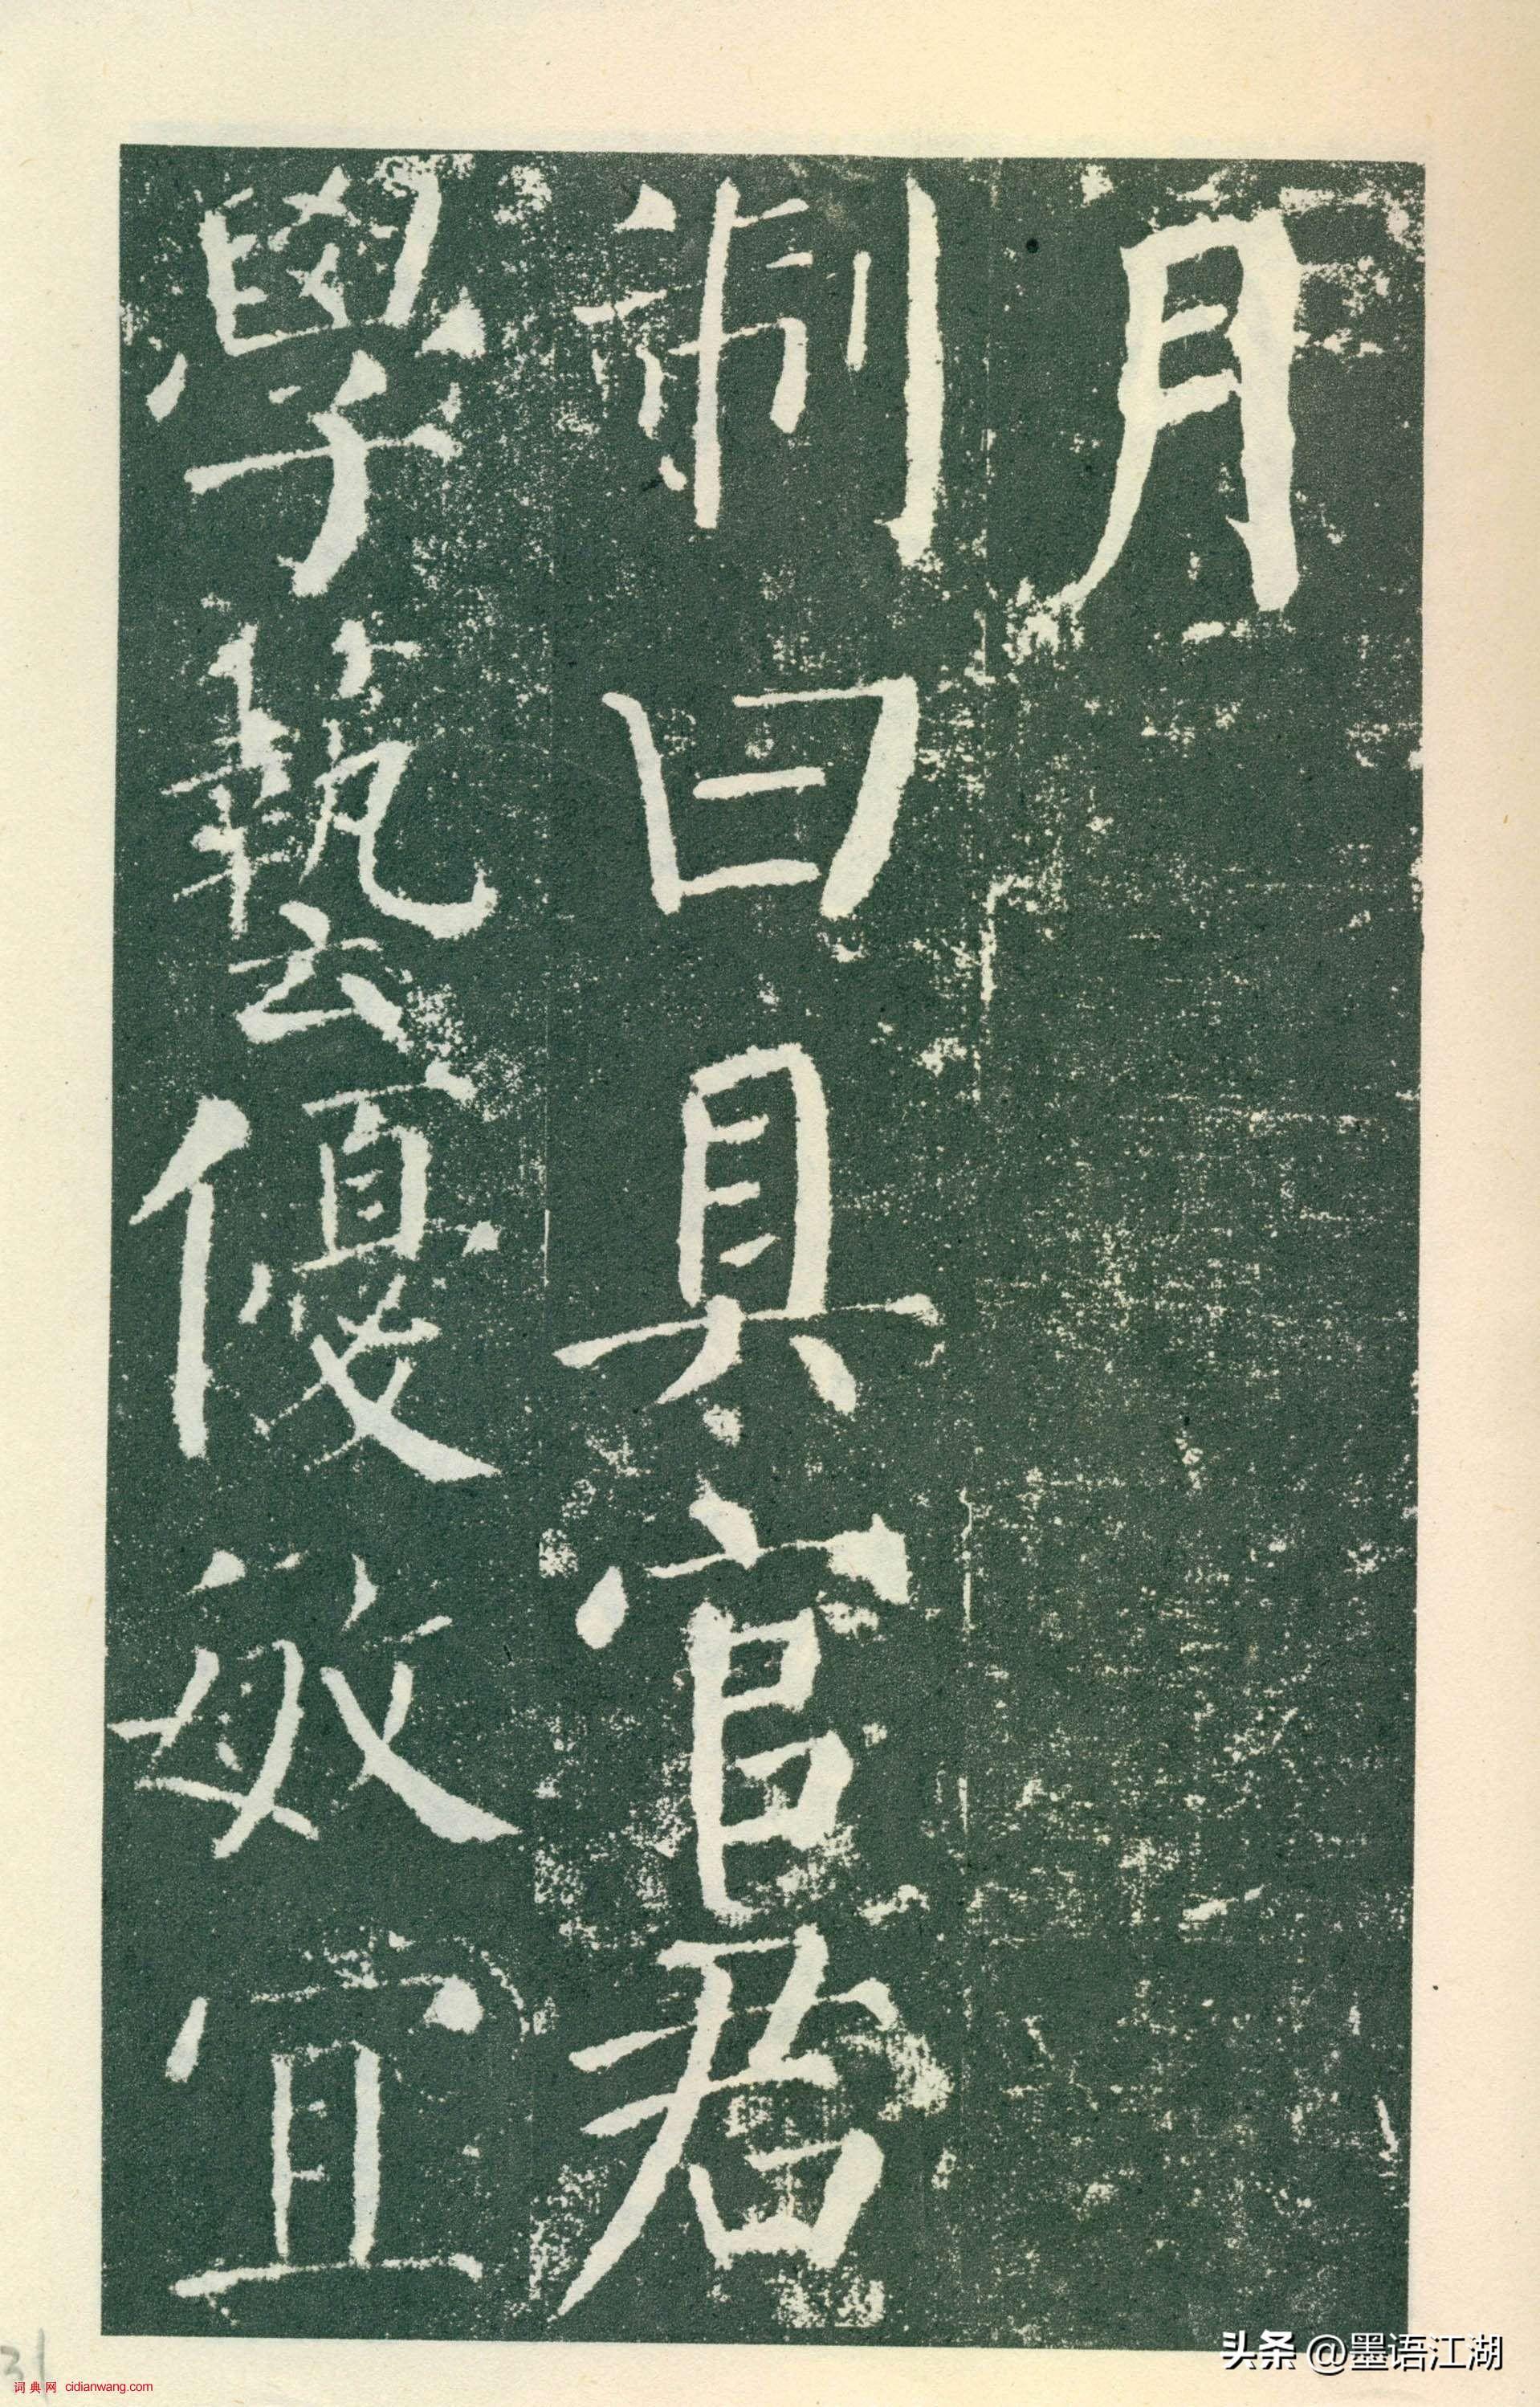 月
制曰具官君
學藝優敏宜
31
头条 @墨语江湖
词典网 cidianwang.com